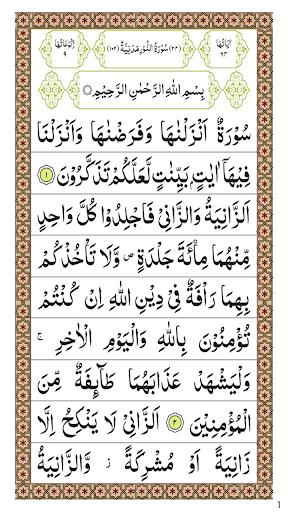 اٰيَاتُهَا ٦٤ (٢٤) سُوْرَةُ النُّوْرِ مَدَنِيَّةٌ (١٠٢) رُكُوْعَاتُهَا ٩
بِسْمِ اللّٰهِ الرَّحْمٰنِ الرَّحِيْمِ
سُوْرَةٌ اَنْزَلْنٰهَا وَفَرَضْنٰهَا وَاَنْزَلْنَا
فِيْهَاۤ اٰيٰتٍۭ بَيِّنٰتٍ لَّعَلَّكُمْ تَذَكَّرُوْنَ ١
اَلزَّانِيَةُ وَالزَّانِيْ فَاجْلِدُوْا كُلَّ وَاحِدٍ
مِّنْهُمَا مِائَةَ جَلْدَةٍ ص وَّلَا تَاْخُذْكُمْ
بِهِمَا رَاْفَةٌ فِيْ دِيْنِ اللّٰهِ اِنْ كُنْتُمْ
تُؤْمِنُوْنَ بِاللّٰهِ وَالْيَوْمِ الْاٰخِرِ ج
وَلْيَشْهَدْ عَذَابَهُمَا طَآئِفَةٌ مِّنَ
الْمُؤْمِنِيْنَ ٢ اَلزَّانِيْ لَا يَنْكِحُ اِلَّا
زَانِيَةً اَوْ مُشْرِكَةً ز وَّالزَّانِيَةُ
1